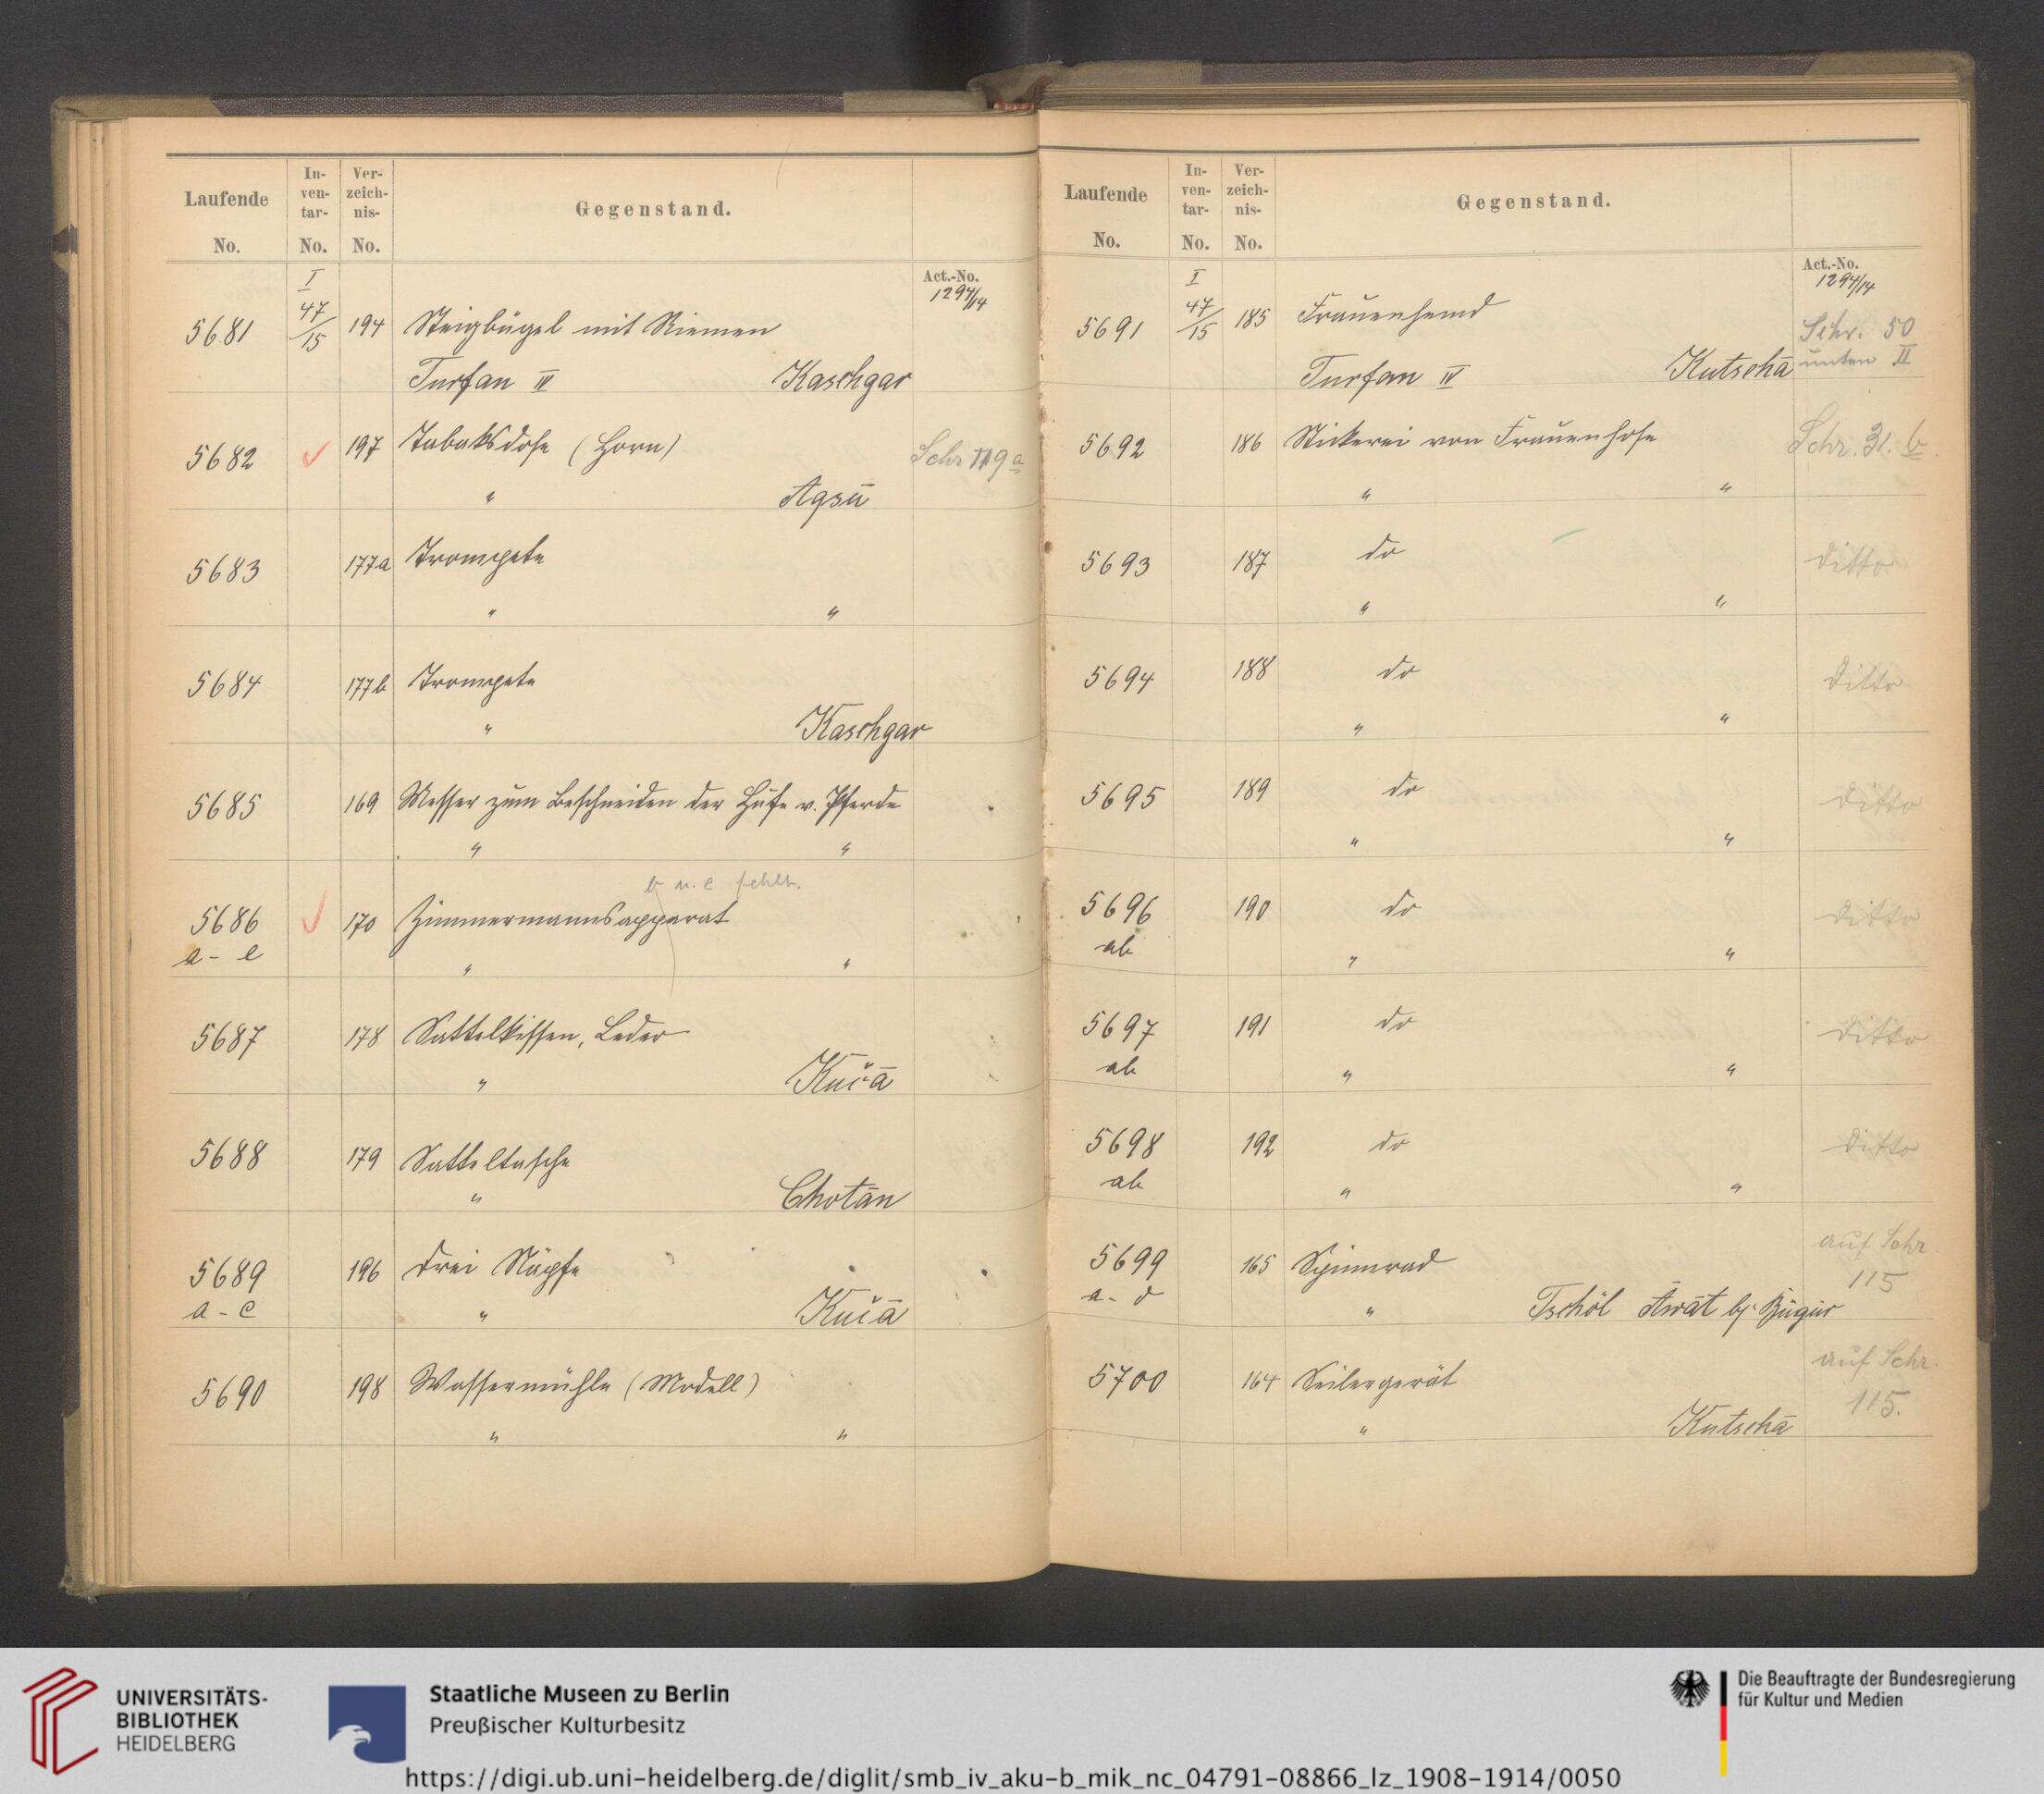 Laufende No.
In-ven-tar- No.
Ver-zeich-nis- No.
Gegenstand.
Act.-No.
1294/14
5681 I 47/15 194 Steigbügel mit Riemen
Turfan IV Kaschgar
5682 ✓ 197 Tabaksdose (Horn) Schr 119a
" Aqsū
5683 177a Trompete
" "
5684 177b Trompete
" Kaschgar
5685 169 Messer zum Beschneiden der Hufe v. Pferde
" "
b u. c fehlt.
5686 ✓ 170 Zimmermannsapparat
a - e " "
5687 178 Sattelkissen, Leder
" Kučā
5688 179 Satteltasche
" Chotän
5689 196 Drei Näpfe
a - c " Kučā
5690 198 Wassermühle (Modell)
" "
Laufende No.
In-ven-tar- No.
Ver-zeich-nis- No.
Gegenstand.
Act.-No.
1294/14
5691 I 47/15 185 Frauenhemd Schr. 50
Turfan IV Kutschā unten II
5692 186 Stickerei von Frauenhose Schr. 31. b
" "
5693 187 do ditto
" "
5694 188 do ditto
" "
5695 189 do ditto
" "
5696 190 do ditto
ab " "
5697 191 do ditto
ab " "
5698 192 do ditto
ab " "
5699 165 Spinnrad auf Schr. 115
a - d " Tschöl Awāt bj. Bügür
5700 164 Seilergerät auf Schr. 115.
" Kutschā
UNIVERSITÄTS-
BIBLIOTHEK
HEIDELBERG
Staatliche Museen zu Berlin
Preußischer Kulturbesitz
Die Beauftragte der Bundesregierung
für Kultur und Medien
https://digi.ub.uni-heidelberg.de/diglit/smb_iv_aku-b_mik_nc_04791-08866_lz_1908-1914/0050